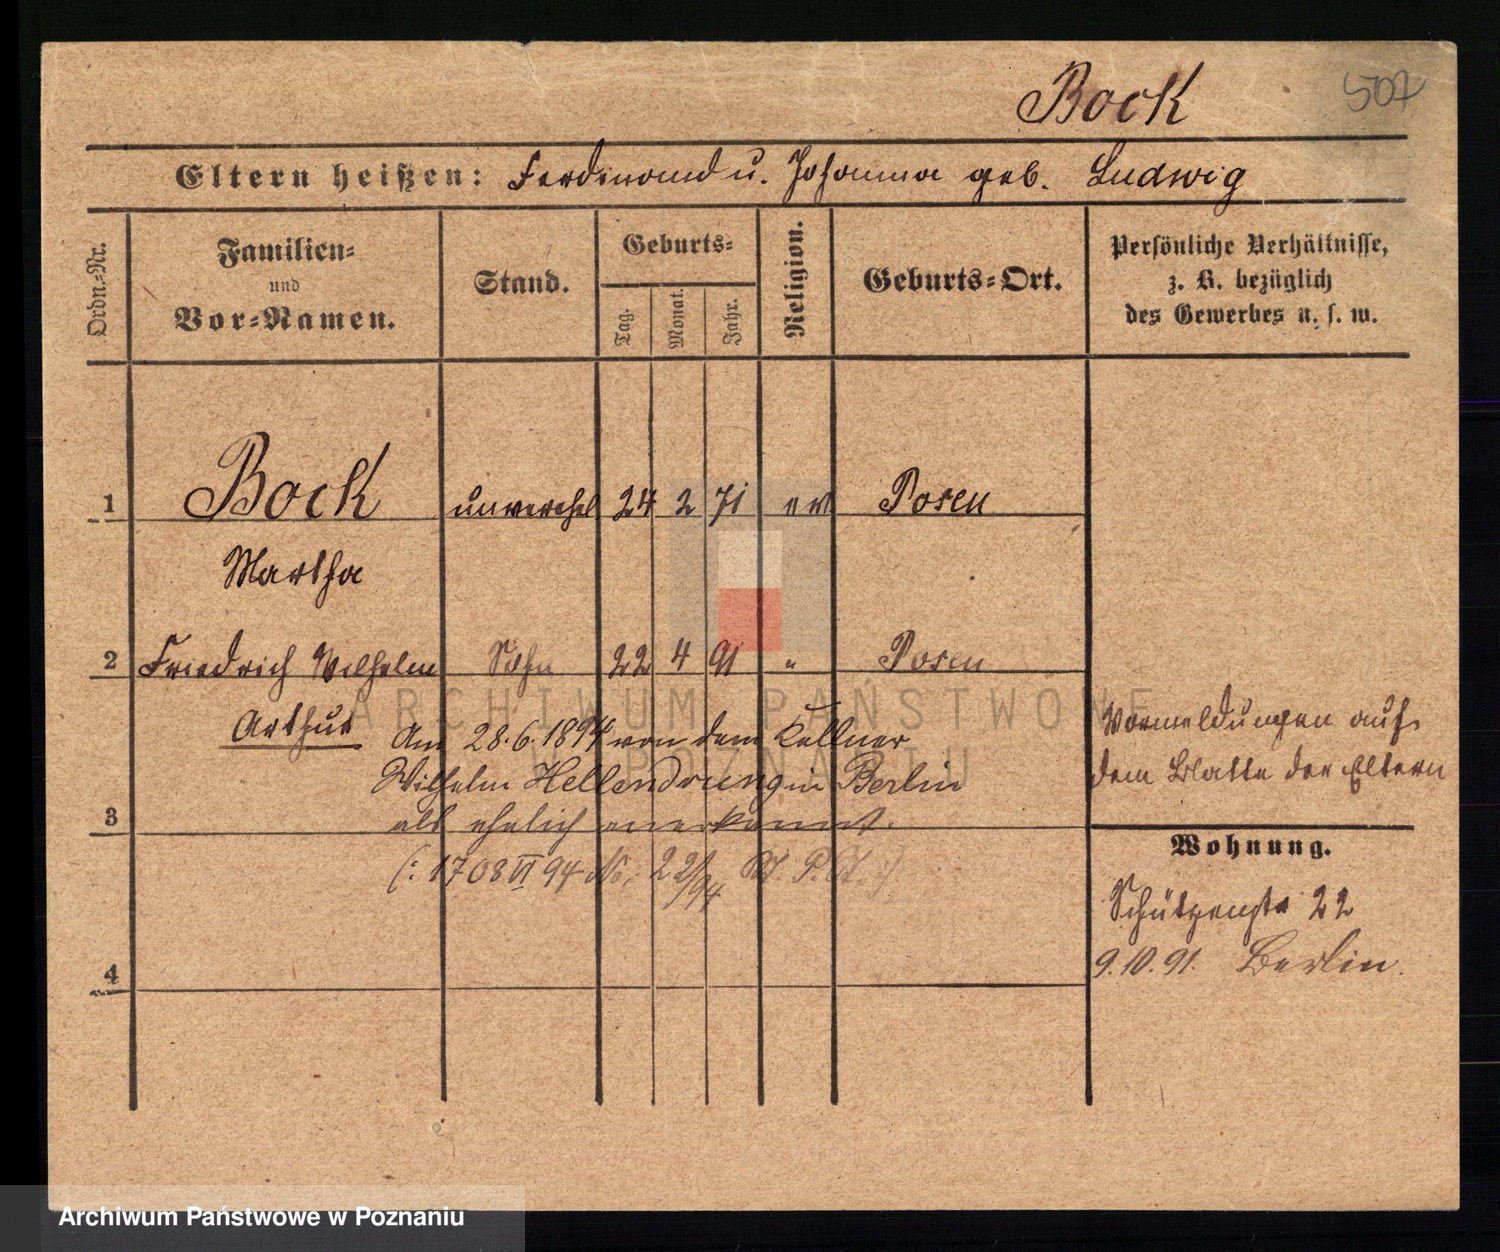 Bock
507
Eltern heißen: Ferdinand u. Johanna geb. Ludwig
Ordn.-Nr.
Familien-
und
Vor-Namen.
Stand.
Geburts-
Tag.
Monat.
Jahr.
Religion.
Geburts-Ort.
Persönliche Verhältnisse,
z. B. bezüglich
des Gewerbes u. s. w.
1 Bock unverehel 24 2 71 ev Posen
Martha
2 Friedrich Wilhelm Sohn 22 4 91 " Posen
Arthur
Am 28.6.1894 von dem Kellner
Wilhelm Hellendrung in Berlin
als ehelich anerkannt.
3
(: 1708 VI 94 22/94
4
Vormeldungen auf
dem Blatte der Eltern
Wohnung.
Schützenstr 22
9.10.91. Berlin.
ARCHIWUM PAŃSTWOWE
W POZNANIU
Archiwum Państwowe w Poznaniu